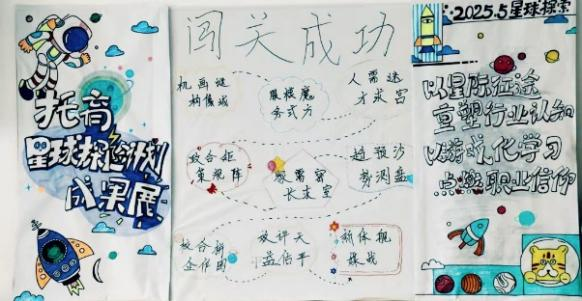 托育
星球探险计划
成果展
闯关成功
机画谜
构像城
服模魔
务式方
人需迷
才求宫
政合矩
策规阵
家需密
长求室
趋预沙
势测盘
校合拼
企作图
效评天
益估平
新体
媒
2025.5星球探索
以星际征途
重塑行业认知
以游戏化学习
点燃职业信仰